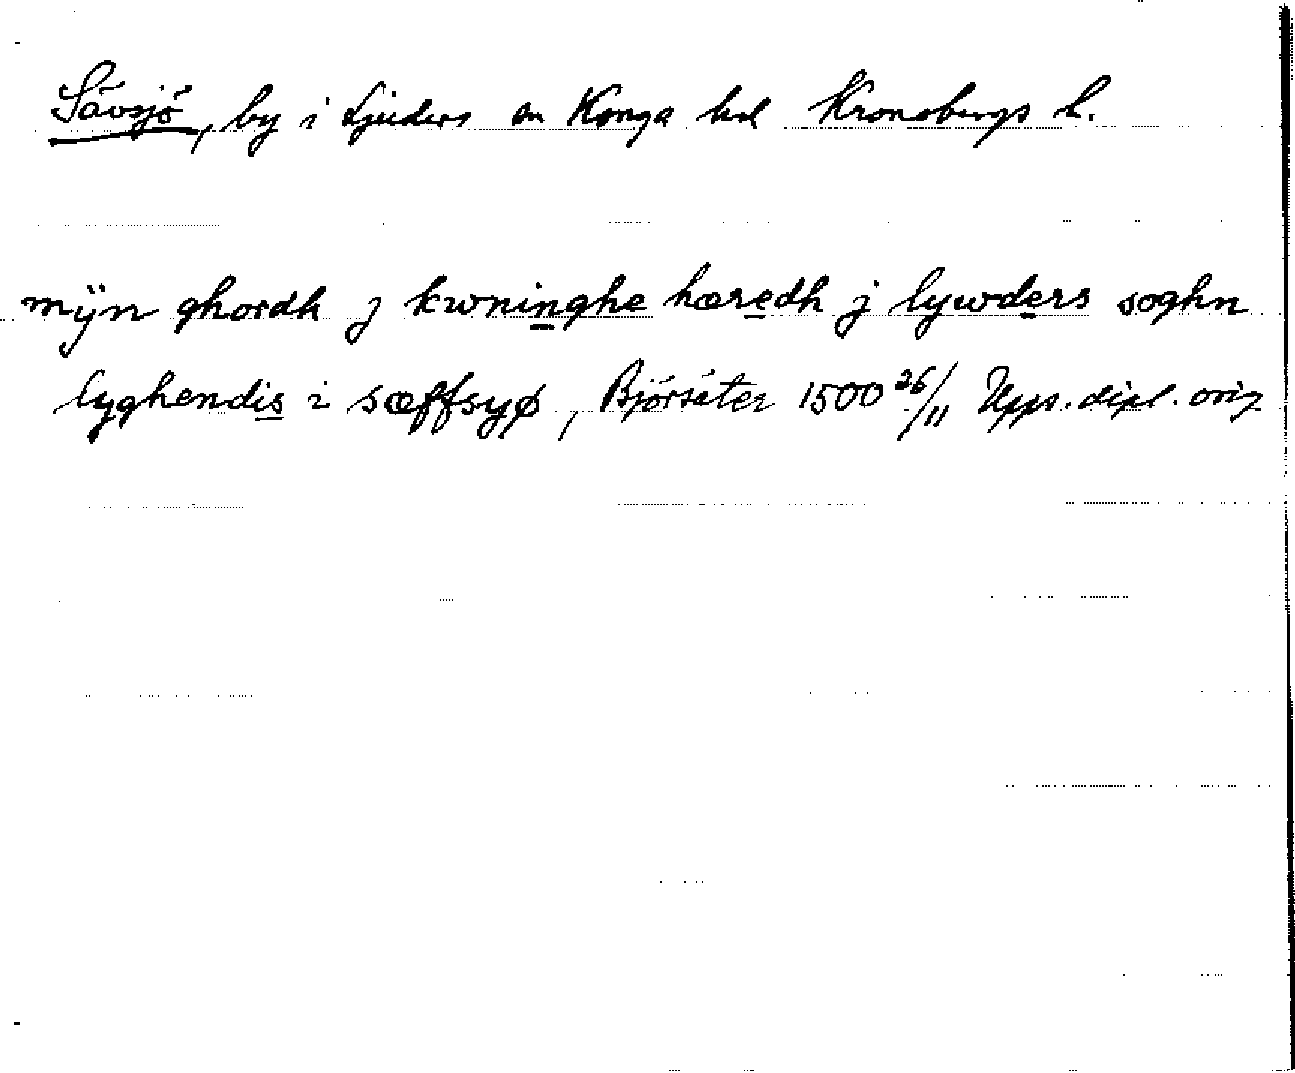 Sävsjö, by i Ljuders sn Konga hd Kronobergs l.
mÿn ghordh j kwninghe hæredh j lywders soghn
lyghendis i sæffsyø, Björsäter 1500 26/11 Upps. dipl. orig